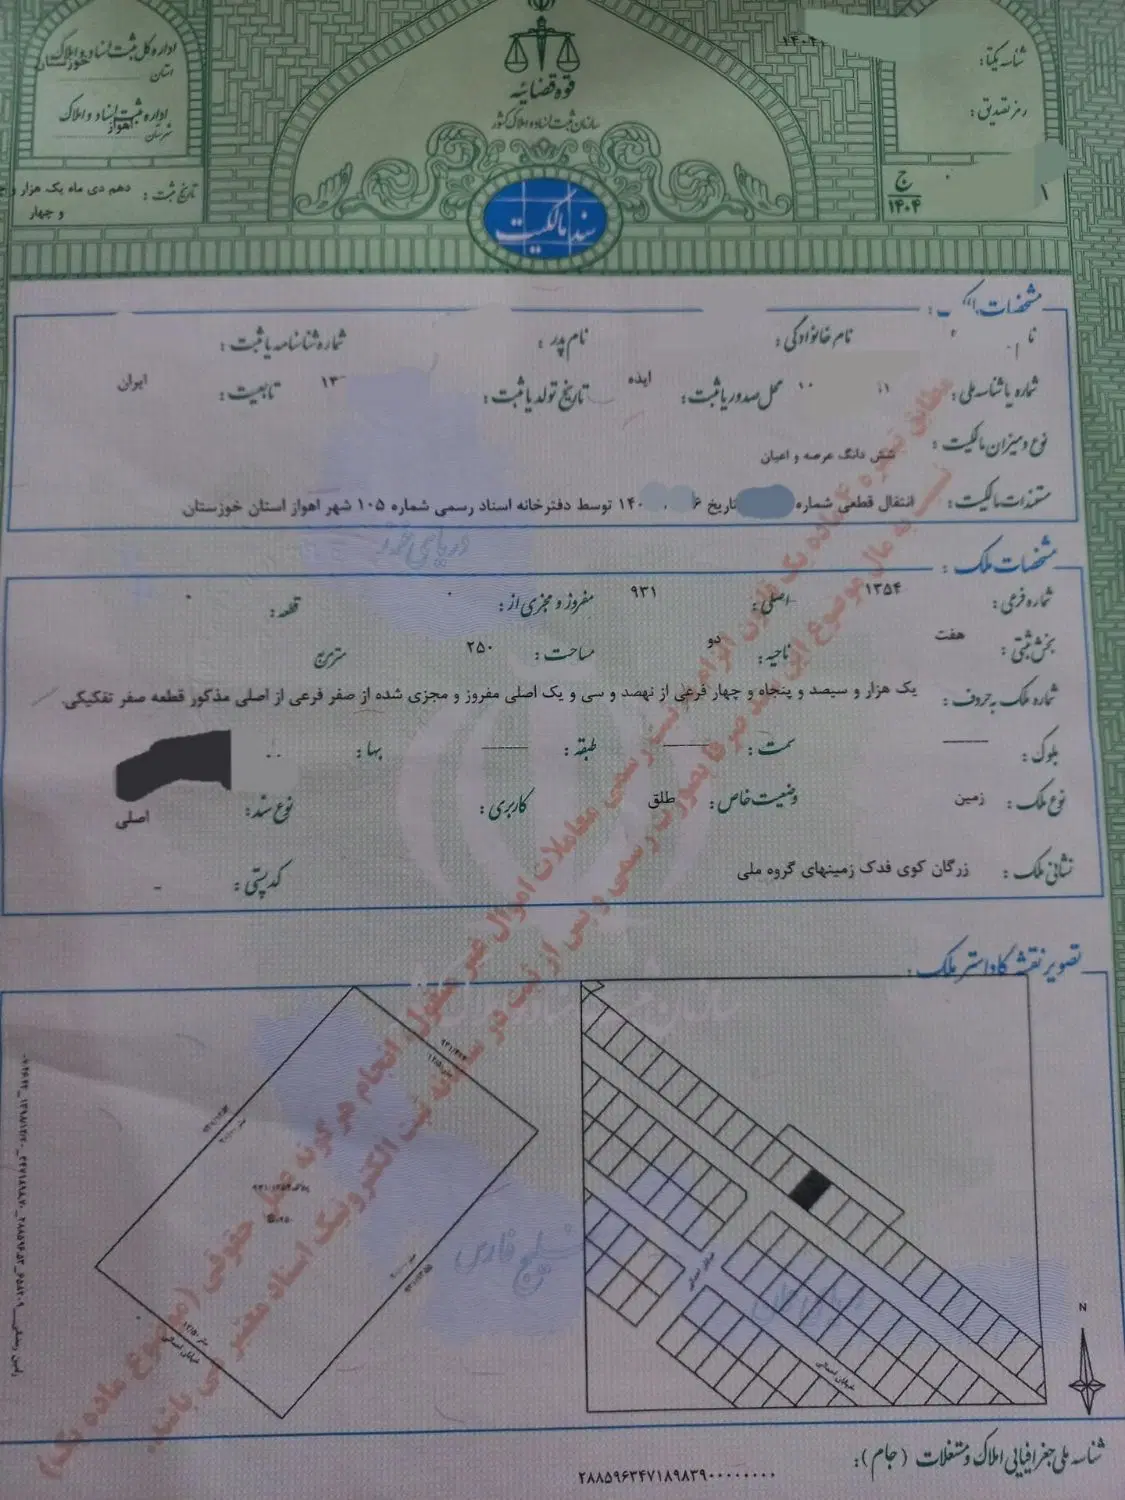 قوه قضائیه
سازمان ثبت اسناد و املاک کشور
شناسه یکتا:
رمز تصدیق:
اداره کل ثبت اسناد و املاک
استان خوزستان
اداره ثبت اسناد و املاک
شهرستان اهواز
تاریخ ثبت: دهم دی ماه یک هزار و
و چهار
ج
۱۴۰۴
۱
سند مالکیت
مشخصات مالک:
نام خانوادگی: نام پدر: شماره شناسنامه یا ثبت:
شماره یا شناسه ملی: محل صدور یا ثبت: ایذه تاریخ تولد یا ثبت: ۱۳ تابعیت: ایران
نوع و میزان مالکیت: شش دانگ عرصه و اعیان
مستندات مالکیت: انتقال قطعی شماره تاریخ ۶ ۱۴۰ توسط دفترخانه اسناد رسمی شماره ۱۰۵ شهر اهواز استان خوزستان
دریای خزر
مشخصات ملک:
شماره فرعی: ۱۳۵۴ اصلی: ۹۳۱ مفروز و مجزی از: ۰ قطعه: ۰
بخش ثبتی: هفت ناحیه: دو مساحت: ۲۵۰ مترمربع
شماره ملک به حروف: یک هزار و سیصد و پنجاه و چهار فرعی از نهصد و سی و یک اصلی مفروز و مجزی شده از صفر فرعی از اصلی مذکور قطعه صفر تفکیکی.
بلوک: سمت: طبقه: بها:
نوع ملک: زمین وضعیت خاص: طلق کاربری: نوع سند: اصلی
نشانی ملک: زرگان کوی فدک زمینهای گروه ملی کدپستی: -
مطابق تبصره ۴ ماده یک قانون الزام به ثبت رسمی معاملات اموال غیر منقول، انجام هرگونه عمل حقوقی (موضوع ماده یک)
نسبت به مال موضوع این سند صرفا بصورت رسمی و پس از ثبت در سامانه ثبت الکترونیک اسناد معتبر می باشد.
تصویر نقشه کاداستر ملک:
پلاک ۹۳۱/۱۳۵۴
۹۳۱/۱۳۵۵
خیابان احداثی
خلیج فارس
خیابان احداثی
N
شناسه ملی جغرافیایی املاک و مستغلات (جام):
۲۸۸۵۹۶۳۴۷۱۸۹۸۳۹۰۰۰۰۰۰۰۰